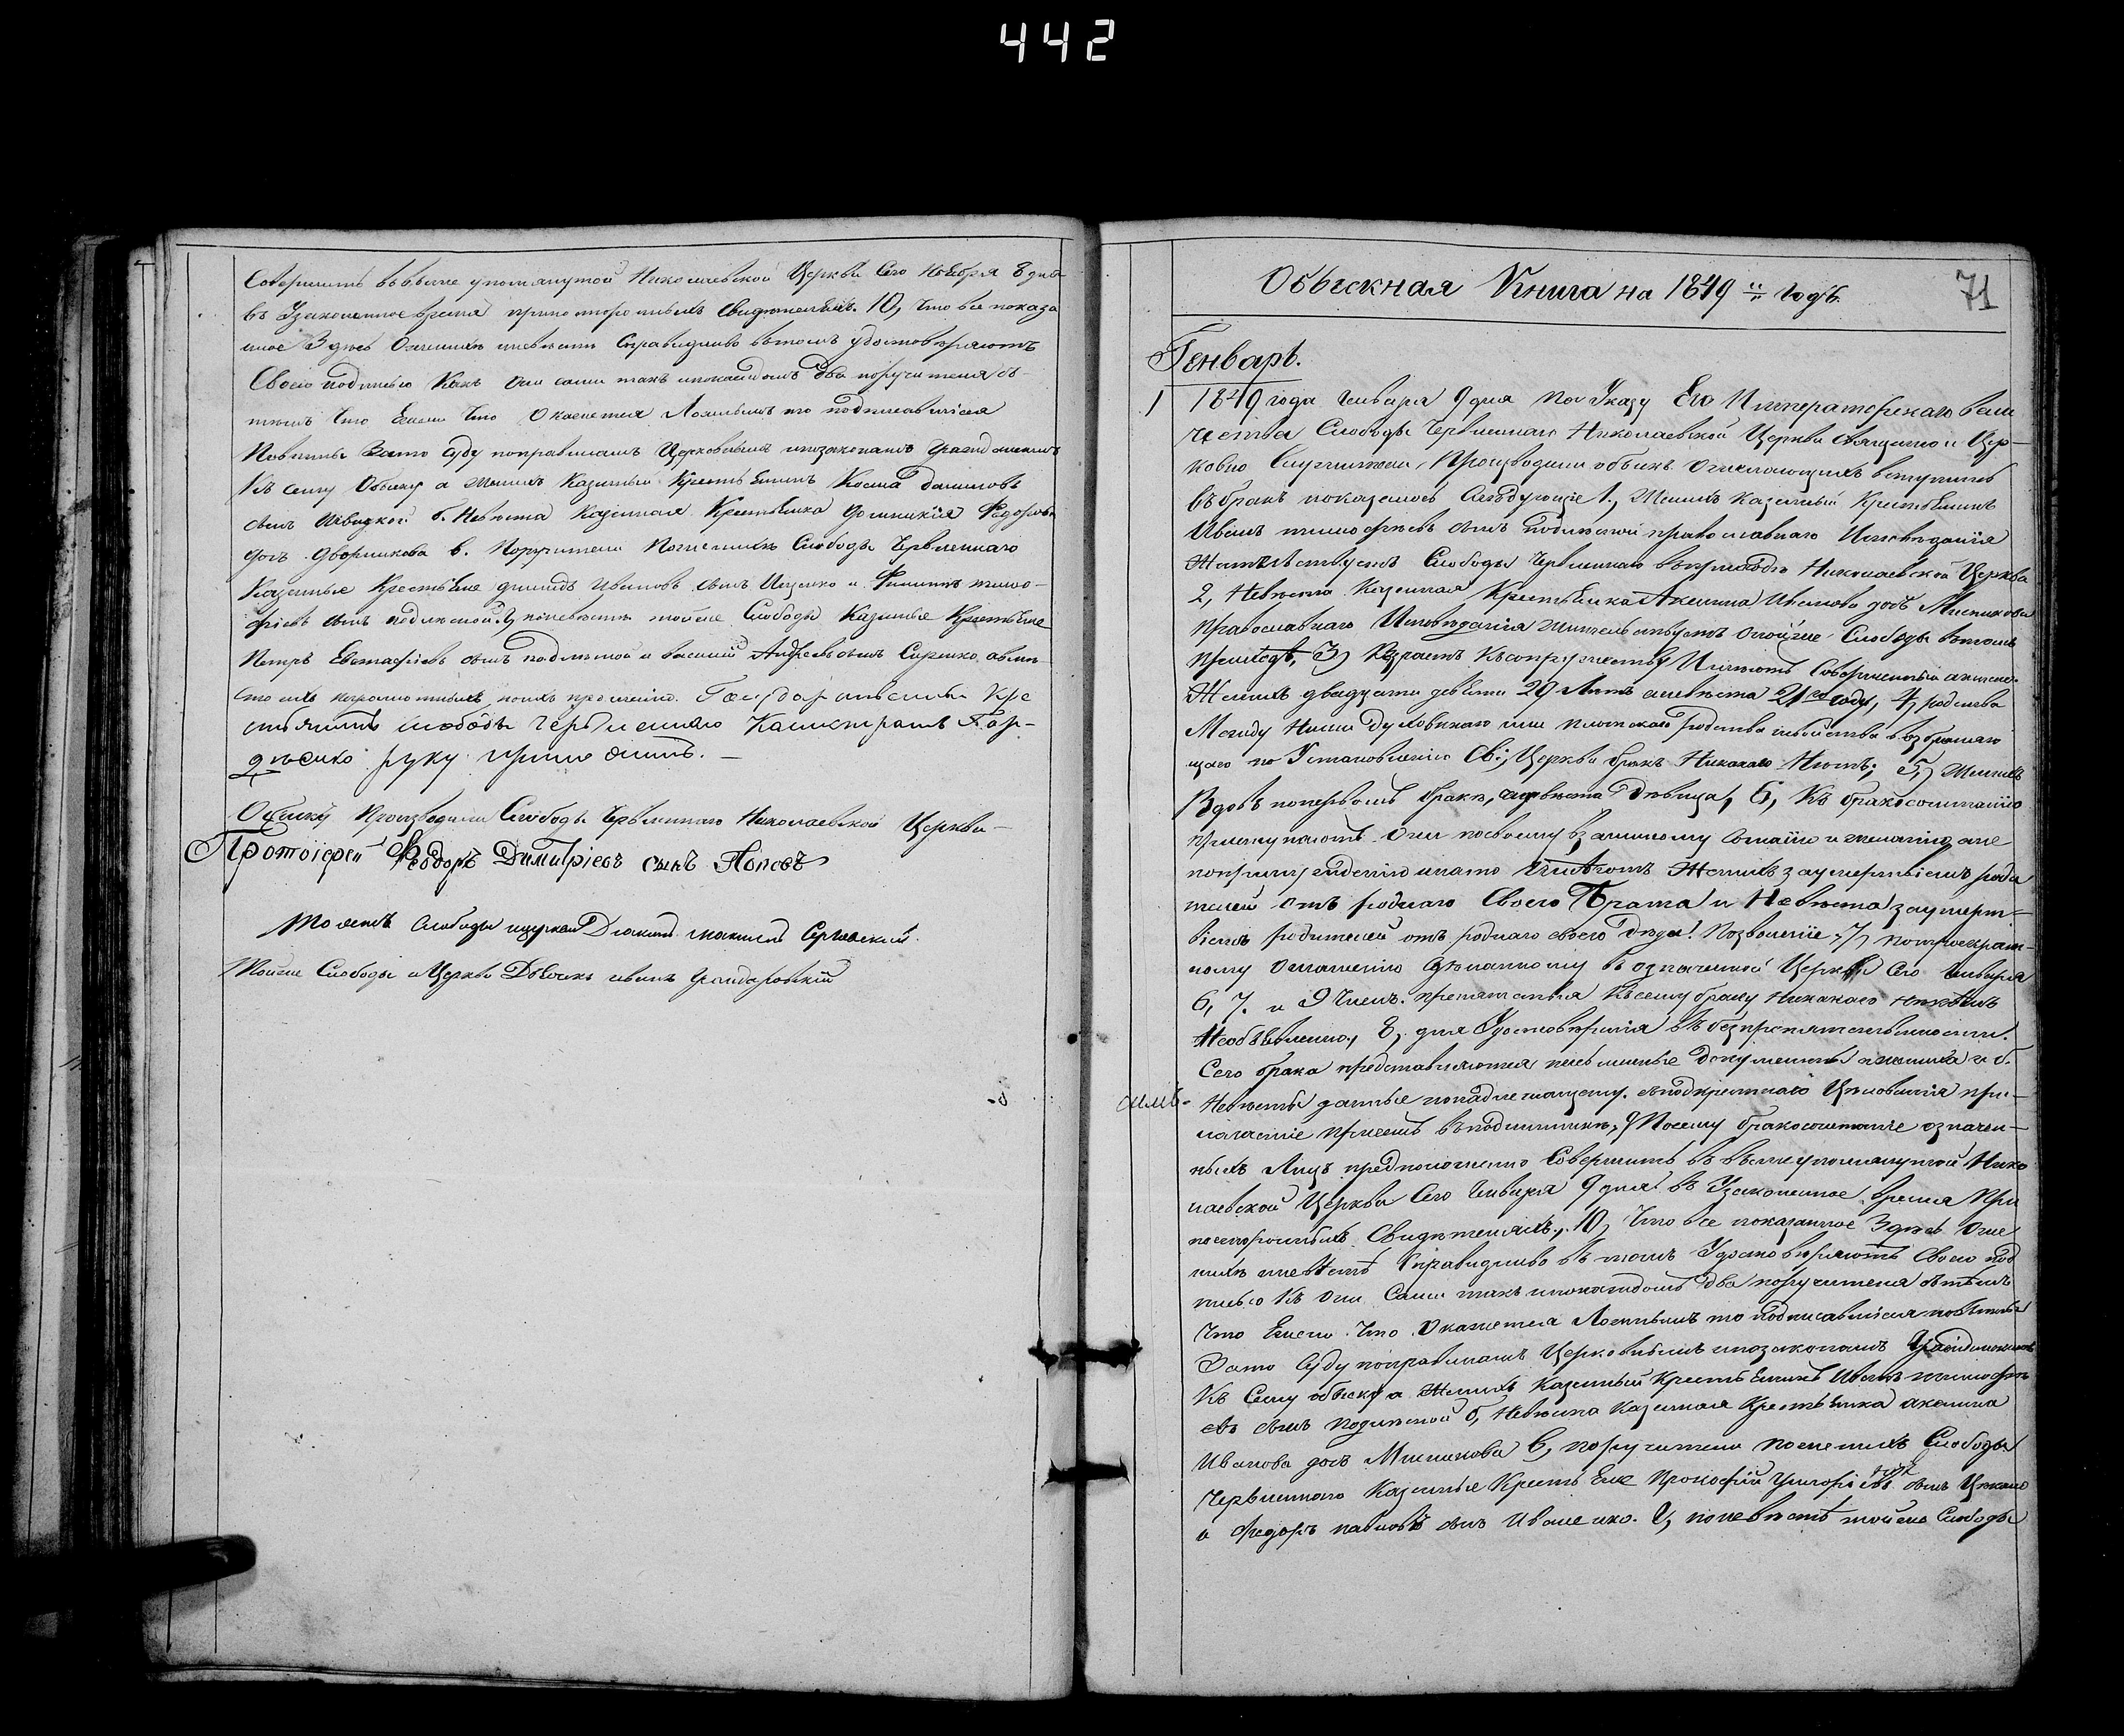 442
Совершить въ выше упомянутой Николаевской Церкви Сего Ноября 8 дня
въ Узаконенное время при посторонныхъ Свидетеляхъ. 10, что все показа
ное Здесь О женихе и невесте Справидливо въ томъ удостоверяютъ
Своею подписью Какъ они сами такъ и по каждомъ два поручителя съ
темъ что Ежели что Окажется Ложнымъ то подписавшiеся
Повинны Зато Суду по правиламъ Церковнымъ и по законамъ Гражданскимъ
Къ сему Обыску а Женихъ Казенный Крестьянинъ Косма Даниловъ
сынъ б. Невеста Казенная Крестьянка Федорова
дочь Дворникова в. Поручители По женихе Слободы Червленнаго
Казенные Крестьяне Ивановъ сынъ Ищенко и Филиппъ тимо-
феевъ сынъ По невесте тойже Слободы Казенные Крестьяне
Петръ Евстафiевъ сынъ и василiй Андреевъ сынъ Сиренко, а вме-
сто ихъ неграмотныхъ по ихъ прошенiю. Государственный Кре
стьянинъ слободы Червленнаго Калистратъ Гор-
денко руку приложилъ. —
Обыскъ Производили Слободы Червленнаго Николаевской Церкви —
Протоiерей Феодоръ Димитрiевъ сынъ Поповъ
Тояжъ Слободы и церкви Дiаконъ
Тойже Слободы и Церкви Дьячекъ
Обыскная Книга на 1849й годъ.
71
Генварь.
1 1849 года Генваря 9 дня По Указу Его Императорскаго вели
чества Слободы Червленнаго Николаевской Церкви Священно и Цер-
ковно Служители, Производили обыскъ о желающихъ вступить
въ бракъ показалось Следующее 1., Женихъ Казенный Крестьянинъ
Иванъ тимофеевъ сынъ православнаго Исповеданiя
Жительствуетъ Слободы Червленнаго въ приходе Николаевской Церкви
2, Невеста Казенная Крестьянка Акилина Иванова дочь Мисникова
православнаго Исповеданiя жительствуетъ тойже Слободы в томъ
приходе, 3) Возрастъ Къ супружеству Имеютъ Совершенный а именно
Женихъ двадцати девяти 29 Летъ а невеста 21го году, 4, родства
Между Ними Духовнаго или плотскаго родства и свойства возбраняю
щаго по Установленiю Св: Церкви бракъ Никакаго Нетъ; 5, Женихъ
Вдовъ по первомъ браке, а невеста Девица, 6, Къ бракосочетанiю
приступаютъ Они по своему взаимному Согласiю и желанiю, а не
по принужденiю и на то Имеютъ Женихъ за умертвiемъ роди
телей Отъ роднаго Своего Брата и Невеста за умерт-
вiемъ родителей отъ роднаго своего Деда Позволенiе, 7, по троекрат-
ному Оглашенiю Сделанному въ означенной Церкви Сего Генваря
6, 7. и 9 Числъ. препятствiя Къ сему браку Никакаго Никемъ
Необъявлено, 8, для Удостоверенiя въ безпрепятственности
Сего брака представляются письменные документы а жениха и б.
Невесты данные
ложенiе при семъ въ подлиннике, 9 Посему бракосочетанiе означен-
ныхъ Лицъ предположено Совершить въ вышеупомянутой Нико
лаевской Церкви Сего Генваря 9 дня въ Узаконенное время При
постороннихъ Свидетеляхъ, 10, Что все показанное Здесь О же
нихе и невесте Справидливо въ томъ Удостоверяютъ Своею под
писью Къ Они Сами такъ и по каждомъ два поручителя съ темъ
Что Ежели Что Окажется Ложнымъ то подписавшiеся повинны
Зато Суду по правиламъ Церковнымъ и по законамъ Гражданскимъ
Къ Сему обыску а Женихъ Казенный Крестьянинъ Иванъ тимофе
евъ сынъ б, Невеста Казенная Крестьянка акилина
Иванова дочь Мисникова в, поручители По женихе Слободы
Червленнаго Казенные Крестьяне Прокофiй Григорiевъ сынъ
и Федоръ павловъ сынъ Иваненко. По невесте тойже Слободы